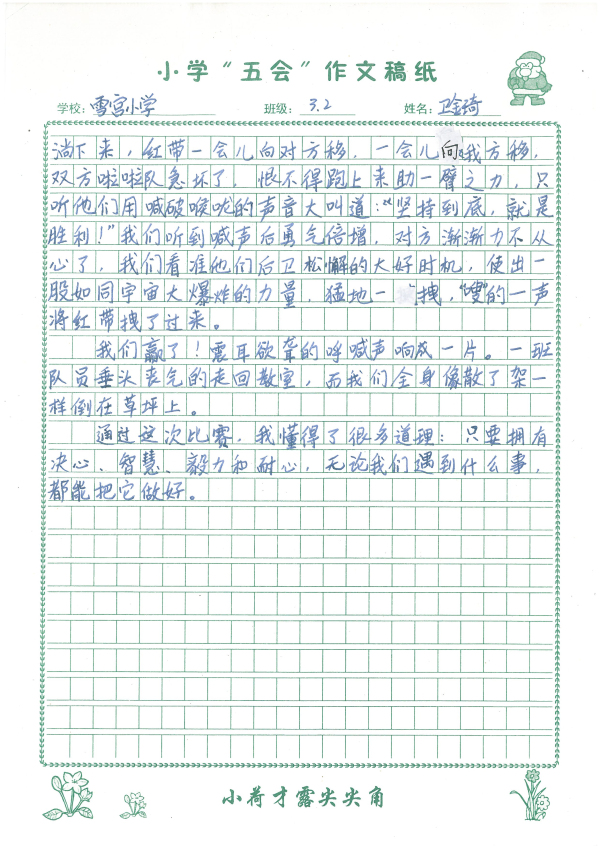 小学“五会”作文稿纸
学校：雪宫小学 班级：3.2 姓名：卫金琦
淌下来，红带一会儿向对方移，一会儿向我方移，
双方啦啦队急坏了，恨不得跑上来助一臂之力，只
听他们用喊破喉咙的声音大叫道：“坚持到底，就是
胜利！”我们听到喊声后勇气倍增，对方渐渐力不从
心了，我们看准他们后卫松懈的大好时机，使出一
股如同宇宙大爆炸的力量，猛地一拽，“嗖”的一声
将红带拽了过来。
我们赢了！震耳欲聋的呼喊声响成一片。一班
队员垂头丧气的走回教室，而我们全身像散了架一
样倒在草坪上。
通过这次比赛，我懂得了很多道理：只要拥有
决心、智慧、毅力和耐心，无论我们遇到什么事，
都能把它做好。
小荷才露尖尖角